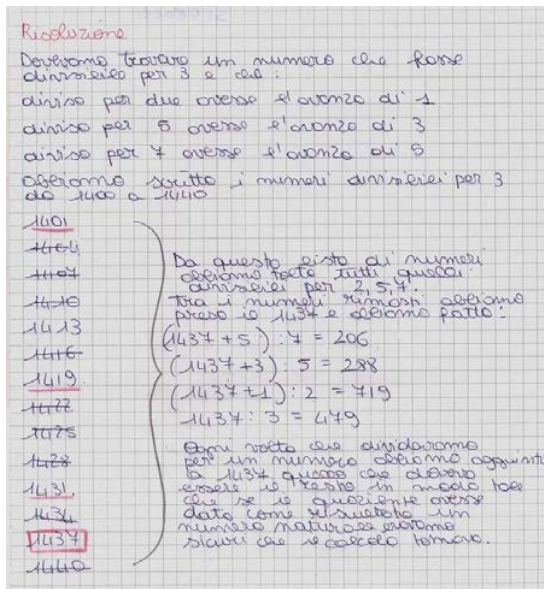 Risoluzione
Dovevamo trovare un numero che fosse
divisibile per 3 e che:
diviso per due avesse l'avanzo di 1
diviso per 5 avesse l'avanzo di 3
diviso per 7 avesse l'avanzo di 5
abbiamo scritto i numeri divisibili per 3
da 1400 a 1440
1401
1404
1407
1410
1413
1416
1419
1422
1425
1428
1431
1434
1437
1440
Da questa lista di numeri
abbiamo tolto tutti quelli
divisibili per 2, 5, 7.
Tra i numeri rimasti abbiamo
preso il 1437 e abbiamo fatto:
(1437 + 5) : 7 = 206
(1437 + 3) : 5 = 288
(1437 + 1) : 2 = 719
1437 : 3 = 479
Ogni volta che dividevamo
per un numero abbiamo aggiunto
a 1437 quello che doveva
essere il resto in modo tale
che se il quoziente avesse
dato come risultato un
numero naturale eravamo
sicuri che il calcolo tornava.